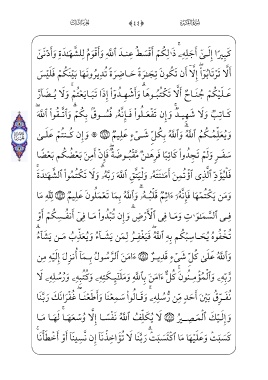 كَبِيرًا إِلَىٰٓ أَجَلِهِۦ ذَٰلِكُمْ أَقْسَطُ عِندَ ٱللَّهِ وَأَقْوَمُ لِلشَّهَٰدَةِ وَأَدْنَىٰٓ
أَلَّا تَرْتَابُوٓا۟ إِلَّآ أَن تَكُونَ تِجَٰرَةً حَاضِرَةً تُدِيرُونَهَا بَيْنَكُمْ فَلَيْسَ
عَلَيْكُمْ جُنَاحٌ أَلَّا تَكْتُبُوهَا وَأَشْهِدُوٓا۟ إِذَا تَبَايَعْتُمْ وَلَا يُضَآرَّ
كَاتِبٌ وَلَا شَهِيدٌ وَإِن تَفْعَلُوا۟ فَإِنَّهُۥ فُسُوقٌۢ بِكُمْ وَٱتَّقُوا۟ ٱللَّهَ
وَيُعَلِّمُكُمُ ٱللَّهُ وَٱللَّهُ بِكُلِّ شَىْءٍ عَلِيمٌ ۞ وَإِن كُنتُمْ عَلَىٰ
سَفَرٍ وَلَمْ تَجِدُوا۟ كَاتِبًا فَرِهَٰنٌ مَّقْبُوضَةٌ فَإِنْ أَمِنَ بَعْضُكُم بَعْضًا
فَلْيُؤَدِّ ٱلَّذِى ٱؤْتُمِنَ أَمَٰنَتَهُۥ وَلْيَتَّقِ ٱللَّهَ رَبَّهُۥ وَلَا تَكْتُمُوا۟ ٱلشَّهَٰدَةَ
وَمَن يَكْتُمْهَا فَإِنَّهُۥٓ ءَاثِمٌ قَلْبُهُۥ وَٱللَّهُ بِمَا تَعْمَلُونَ عَلِيمٌ لِّلَّهِ مَا
فِى ٱلسَّمَٰوَٰتِ وَمَا فِى ٱلْأَرْضِ وَإِن تُبْدُوا۟ مَا فِىٓ أَنفُسِكُمْ أَوْ
تُخْفُوهُ يُحَاسِبْكُم بِهِ ٱللَّهُ فَيَغْفِرُ لِمَن يَشَآءُ وَيُعَذِّبُ مَن يَشَآءُ
وَٱللَّهُ عَلَىٰ كُلِّ شَىْءٍ قَدِيرٌ ءَامَنَ ٱلرَّسُولُ بِمَآ أُنزِلَ إِلَيْهِ مِن
رَّبِّهِۦ وَٱلْمُؤْمِنُونَ كُلٌّ ءَامَنَ بِٱللَّهِ وَمَلَٰٓئِكَتِهِۦ وَكُتُبِهِۦ وَرُسُلِهِۦ لَا
نُفَرِّقُ بَيْنَ أَحَدٍ مِّن رُّسُلِهِۦ وَقَالُوا۟ سَمِعْنَا وَأَطَعْنَا غُفْرَانَكَ رَبَّنَا
وَإِلَيْكَ ٱلْمَصِيرُ لَا يُكَلِّفُ ٱللَّهُ نَفْسًا إِلَّا وُسْعَهَا لَهَا مَا
كَسَبَتْ وَعَلَيْهَا مَا ٱكْتَسَبَتْ رَبَّنَا لَا تُؤَاخِذْنَآ إِن نَّسِينَآ أَوْ أَخْطَأْنَا